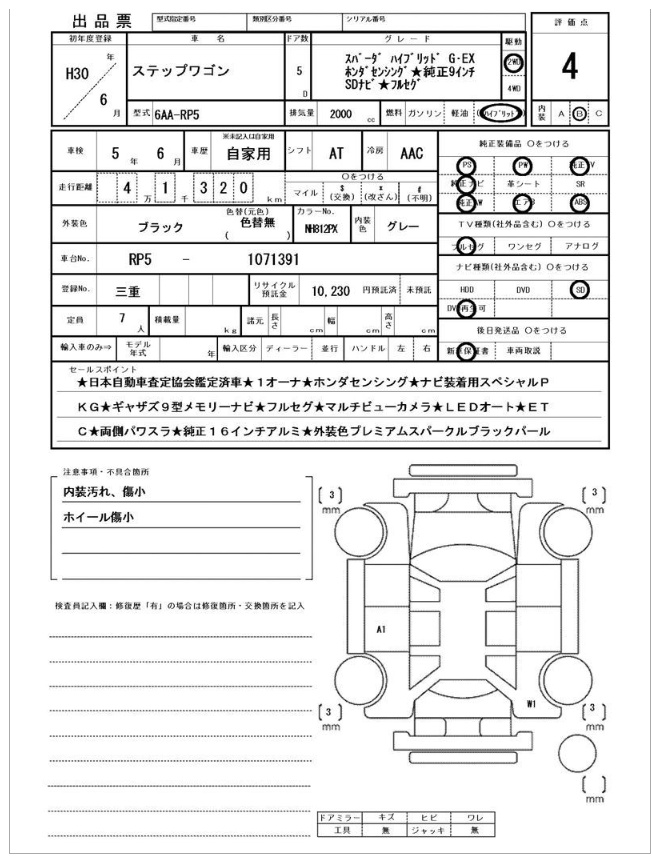 出品票 型式指定番号 類別区分番号 シリアル番号
評価点
4
内装 A B C
初年度登録 車名 ドア数 グレード 駆動
H30年 6月
ステップワゴン
5 D
スパーダ ハイブリッド G・EX
ホンダセンシング★純正9インチ
SDナビ★フルセグ
2WD
4WD
型式 6AA-RP5 排気量 2000 cc 燃料 ガソリン 軽油 ハイブリット
車検 5年 6月 車歴 ※未記入は自家用 自家用 シフト AT 冷房 AAC
走行距離 4万1千320km
○をつける
マイル $(交換) x(改ざん) #(不明)
外装色 ブラック 色替(元色) 色替無 ( ) カラーNo. NH812PX 内装色 グレー
車台No. RP5 - 1071391
登録No. 三重 リサイクル預託金 10,230 円預託済 未預託
定員 7人 積載量 kg 諸元 長さ cm 幅 cm 高さ cm
輸入車のみ⇒ モデル年式 年 輸入区分 ディーラー 並行 ハンドル 左 右
純正装備品 ○をつける
PS PW 純正TV
純正ナビ 革シート SR
純正AW エアB ABS
TV種類(社外品含む)○をつける
フルセグ ワンセグ アナログ
ナビ種類(社外品含む)○をつける
HDD DVD SD
DVD再生可
後日発送品 ○をつける
新車保証書 車両取説
セールスポイント
★日本自動車査定協会鑑定済車★1オーナ★ホンダセンシング★ナビ装着用スペシャルP
KG★ギャザズ9型メモリーナビ★フルセグ★マルチビューカメラ★LEDオート★ET
C★両側パワスラ★純正16インチアルミ★外装色プレミアムスパークルブラックパール
注意事項・不具合箇所
内装汚れ、傷小
ホイール傷小
検査員記入欄:修復歴「有」の場合は修復箇所・交換箇所を記入
[3] mm
[3] mm
A1
W1
[3] mm
[3] mm
[ ] mm
ドアミラー キズ ヒビ ワレ
工具 無 ジャッキ 無